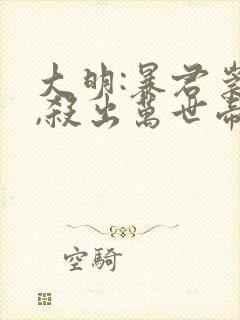 大明:暴君崇
,殺出萬世帝
空騎